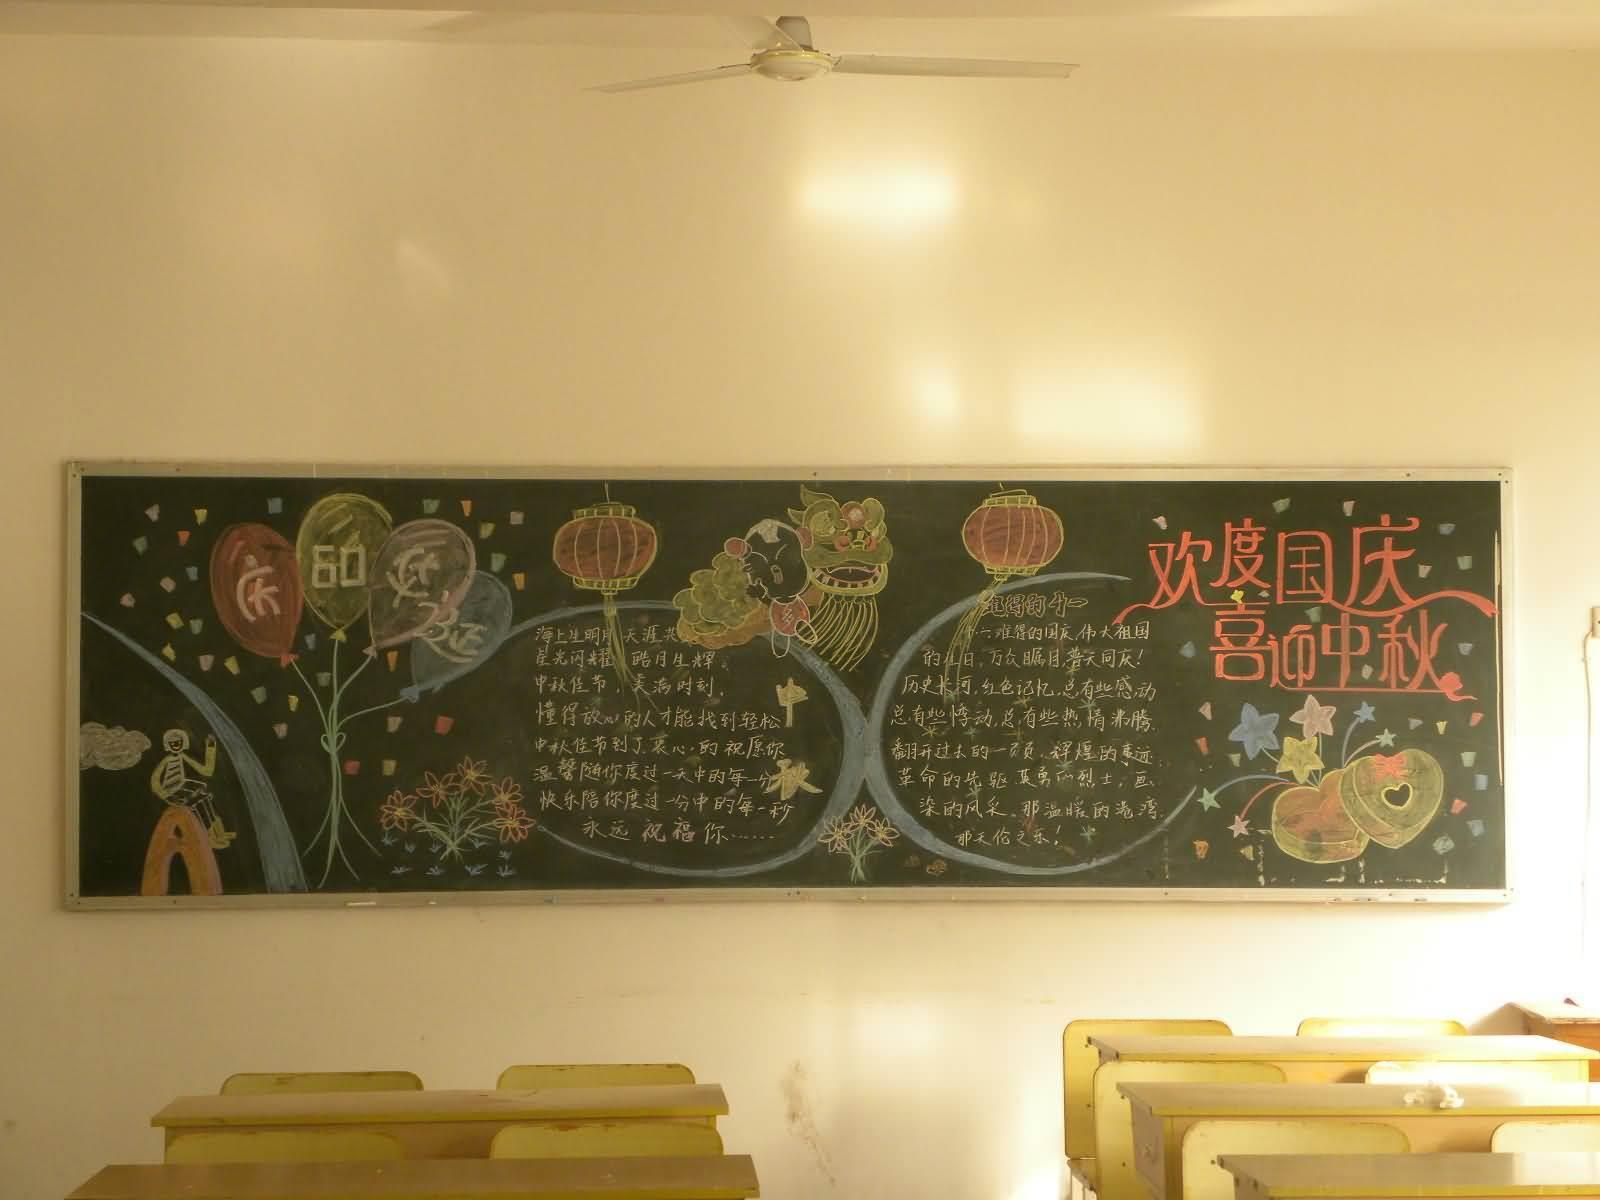 庆
60
华
诞
海上生明月 天涯共
星光闪耀 皓月生辉。
中秋佳节，美满时刻，
懂得放心的人才能找到轻松
中秋佳节到了衷心的祝愿你
温馨随你度过一天中的每一分
快乐陪你度过一分中的每一秒
永远祝福你……
中秋
难得的十一
难得的国庆，伟大祖国
的生日，万众瞩目，普天同庆！
历史长河，红色记忆，总有些感动
总有些悸动，总有些热情沸腾，
翻开过去的一页页，辉煌的事迹
革命的先驱 英勇的烈士，画
染的风采，那温暖的港湾，
那天伦之乐！
欢度国庆
喜迎中秋